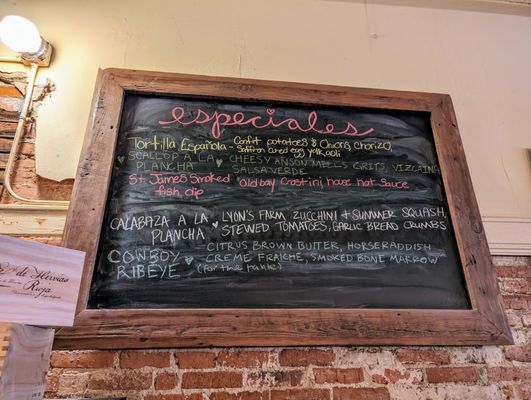 especiales
Tortilla Española - Confit potatoes & Onions, Chorizo,
Saffron cured egg yolk aoli
SCALLOP A LA CHEESY ANSON MILLS GRITS, VIZCAINA
PLANCHA SALSA VERDE
St. James Smoked Old bay Crostini, house hot Sauce
fish dip
CALABAZA A LA LYON'S FARM ZUCCHINI + SUMMER SQUASH,
PLANCHA STEWED TOMATOES, GARLIC BREAD CRUMBS
COWBOY - CITRUS BROWN BUTTER, HORSERADISH
RIBEYE CREME FRAICHE, SMOKED BONE MARROW
(for the table)
de Hervías
Rioja